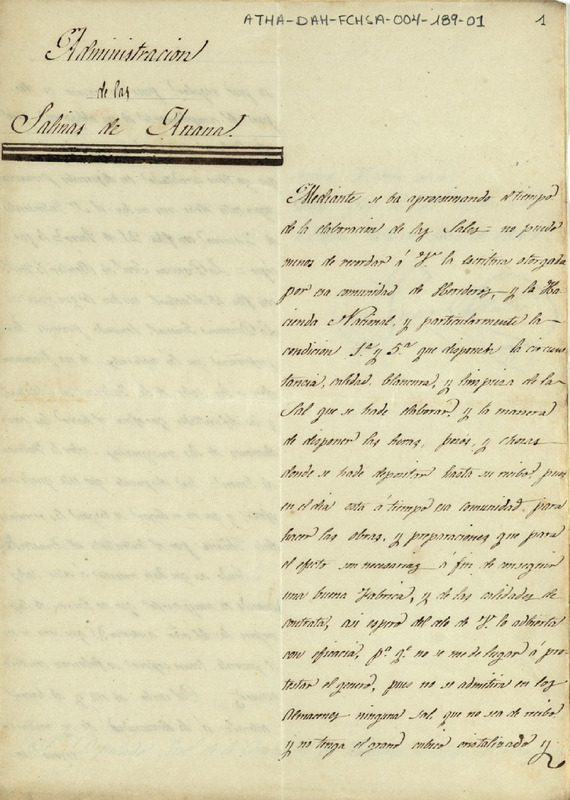 ATHA-DAH-FCHSA-004-189-01
1
Administracion
de las
Salinas de Añana.
Mediante se ba aprocsimando el tiempo
de la elaboracion de las Sales = no puedo
menos de recordar á V. la escritura otorgada
por esa comunidad de Herederos, y la Ha-
cienda Nacional, y particularmente la
condicion 1.ª y 5.ª que disponen la circuns-
tancia, calidad, blancura, y limpieza de la
Sal que se hade elaborar y la manera
de disponer las heras, pozos, y chozas
donde se hade depositar hasta su recibo, pues
en el dia está á tiempo esa comunidad para
hacer las obras, y preparaciones que para
el efecto son necesarias á fin de conseguir
una buena Fabrica, y de las calidades de
contrata, asi espero del celo de V. lo advierta
con eficacia, p.ª q.e no se me de lugar á pro-
testar el genero, pues no se admitira en los
Almacenes ninguna Sal, que no sea de recibo
y no tenga el grano cubico cristalizado y